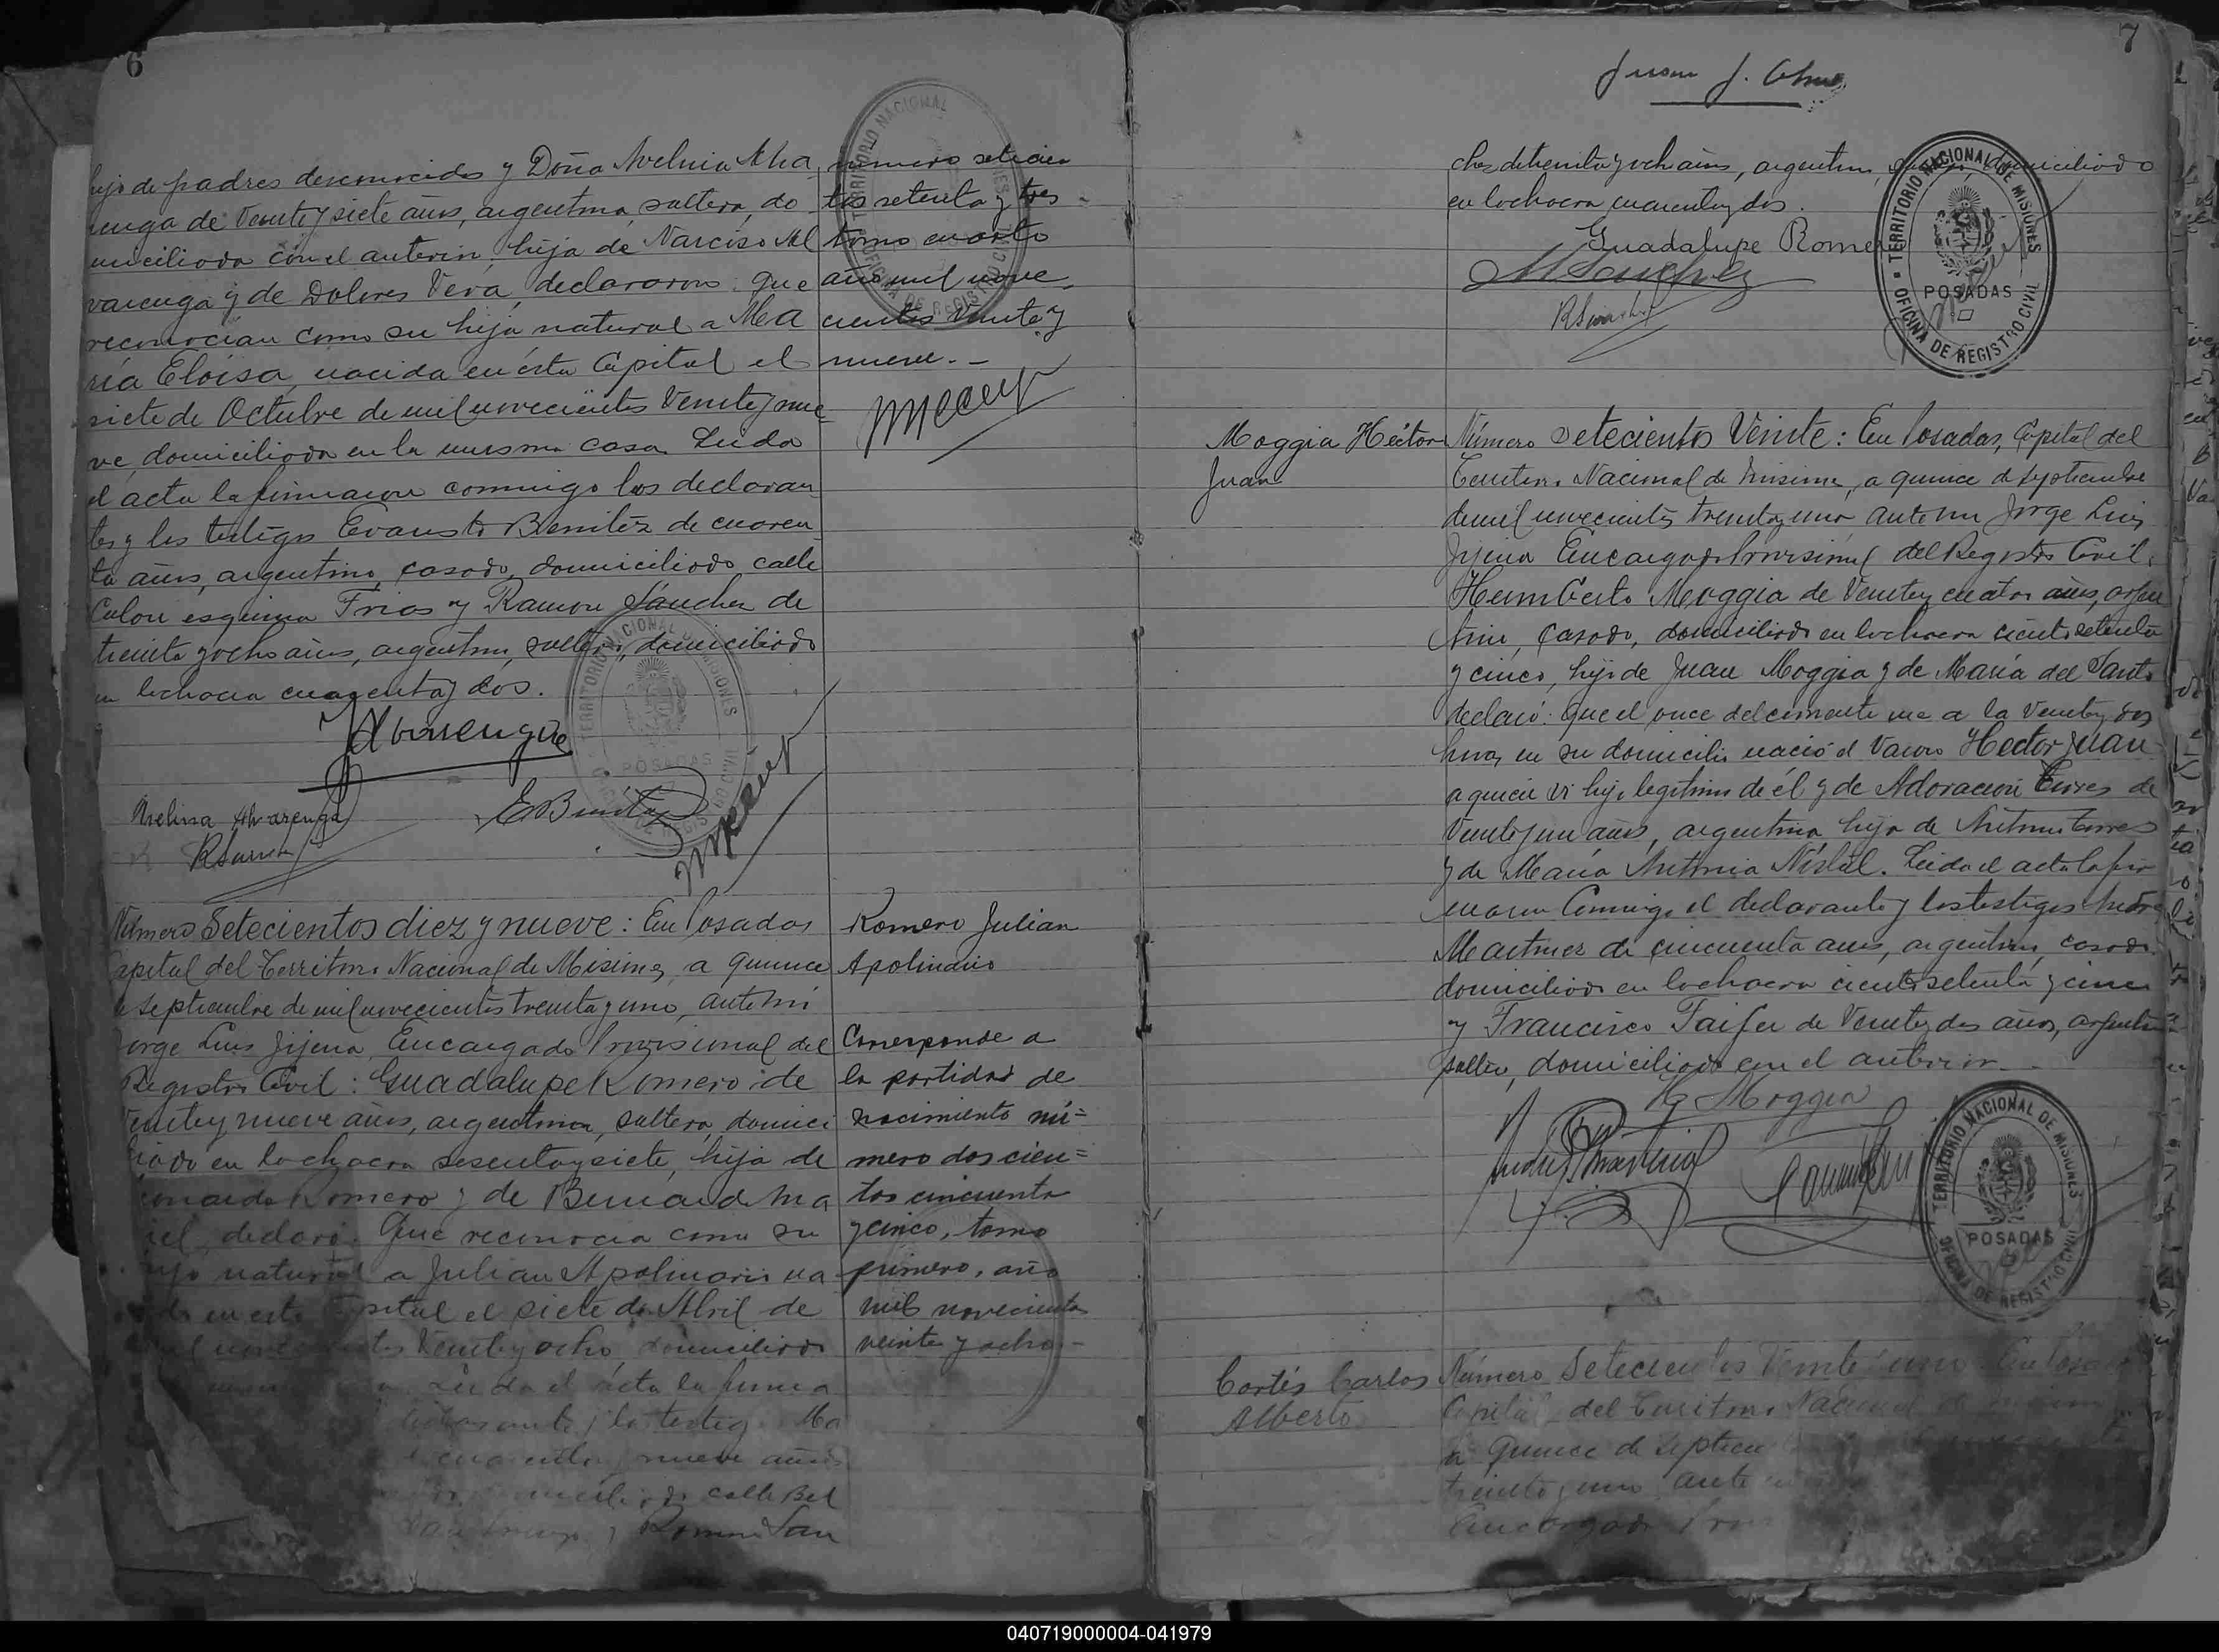 6
hijo de padres desconocidos y Doña Avelina Alva
renga de Veinte y siete años, argentina, soltera, do
miciliada con el anterior, hija de Narciso Al
varenga y de Dolores Vera, declararon: que
reconocian como su hija natural a Ma
ría Eloisa, nacida en ésta Capital el
siete de Octubre de mil novecientos Veinte y nue
ve, domiciliada en la misma casa. Leida
el acta la firmaron conmigo los declaran
tes y los testigos Evaristo Benitez de cuaren
ta años, argentino, casado, domiciliado calle
Colon esquina Frias y Ramon Sanchez de
treinta y ocho años, argentino, soltero, domiciliado
en la chacra cuarenta y dos.
Avelina Alvarenga
EBenitez
número setecien
tos setenta y tres
tomo cuarto
año mil nove
cientos veinte y
nueve.-
TERRITORIO NACIONAL DE MISIONES
POSADAS
OFICINA DE REGISTRO CIVIL
Número Setecientos diez y nueve: En Posadas
Capital del Territorio Nacional de Misiones, a quince
de septiembre de mil novecientos treinta y uno, ante mi
Jorge Luis Jijena, Encargado Provisional del
Registro Civil: Guadalupe Romero de
Veinte y nueve años, argentina, soltera, domici
liada en la chacra sesenta y siete, hija de
Romero y de Bernarda Ma
ciel, declaró: Que reconocia como su
hijo natural a Julian Apolinario na
cido en esta Capital el siete de Abril de
mil novecientos Veinte y ocho, domiciliado
Leida el acta la firma
declarante y los testigos Ma
cuarenta y nueve años
domiciliado calle Bel
y Ramon San
Romero Julian
Apolinario
Corresponde a
la partida de
nacimiento nú=
mero doscien=
tos cincuenta
y cinco, tomo
primero, año
mil novecientos
veinte y ocho.-
7
Juan J.
chez de treinta y ocho años, argentino, domiciliado
en la chacra cuarenta y dos.
Guadalupe Romero
MSanchez
TERRITORIO NACIONAL DE MISIONES
POSADAS
OFICINA DE REGISTRO CIVIL
Moggia Héctor
Juan
Número Setecientos Veinte: En Posadas, Capital del
Territorio Nacional de Misiones, a quince de septiembre
de mil novecientos treinta y uno ante mi Jorge Luis
Jijena Encargado Provisional del Registro Civil,
Humberto Moggia de Veinte y cuatro años, argen
tino, casado, domiciliado en la chacra ciento setenta
y cinco, hijo de Juan Moggia y de María del Santo
declaró: Que el once del corriente mes a la Veinte y dos
horas en su domicilio nació el Varon Hector Juan
a quien vi hijo legitimo de él y de Adoracion Torres de
Veinte y un años, argentina hija de Antonio Torres
y de María Antonia Nistal. Leida el acta la fir
maron Conmigo el declarante y los testigos Andrés
Martinez de cincuenta años, argentino, casado
domiciliado en la chacra ciento setenta y cinco
y Francisco Taifer de Veinte y dos años, argentino
soltero, domiciliado con el anterior.-
H Moggia
TERRITORIO NACIONAL DE MISIONES
POSADAS
OFICINA DE REGISTRO CIVIL
Cortés Carlos
Alberto
Número Setecientos Veinte y uno: En Posadas
Capital del Territorio Nacional de Misiones
a Quince de septiem
treinta y uno ante
Encargado Prov
040719000004-041979